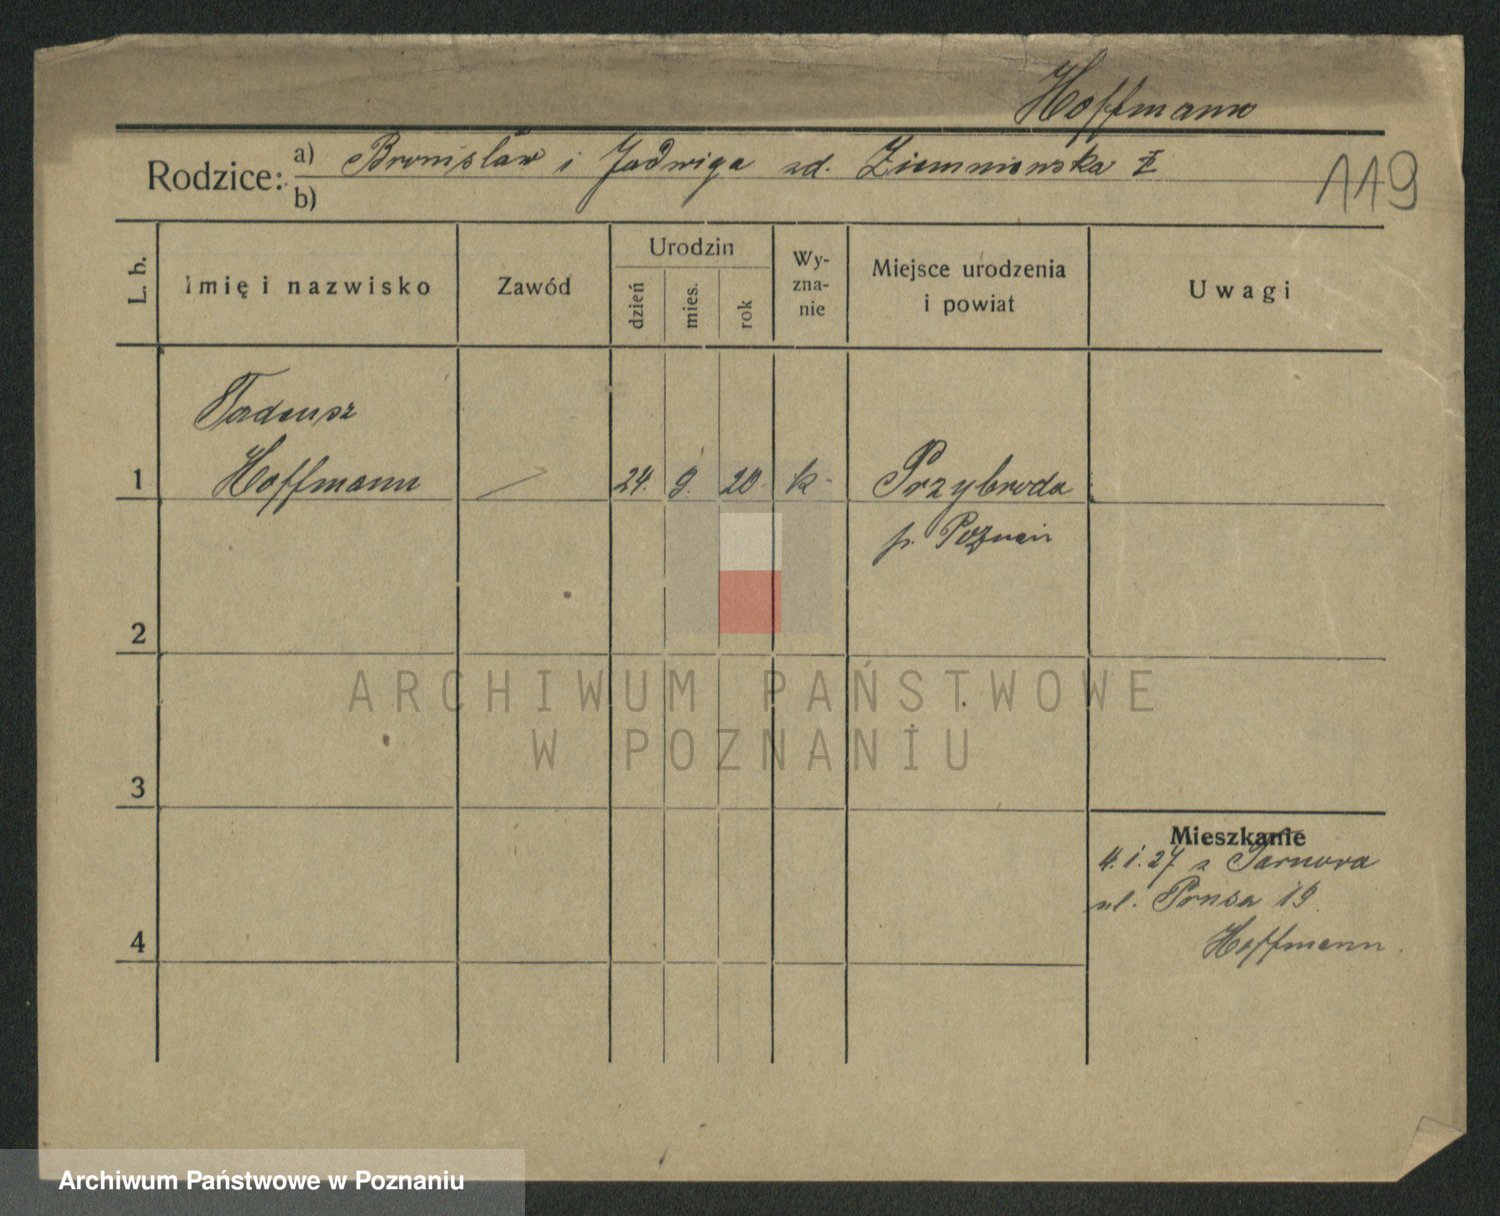 Hoffmann
Rodzice: a) Bronisław i Jadwiga zd. Ziemniewska
b)
119
L. b.
Imię i nazwisko
Zawód
Urodzin
dzień
mies.
rok
Wy-
zna-
nie
Miejsce urodzenia
i powiat
Uwagi
Tadeusz
1 Hoffmann 24. 9. 20 k. Przybroda
p. Poznań
2
3
4
Mieszkanie
4.1.27. z Tarnova
ul. Prusa 19.
Hoffmann.
ARCHIWUM PAŃSTWOWE
W POZNANIU
Archiwum Państwowe w Poznaniu